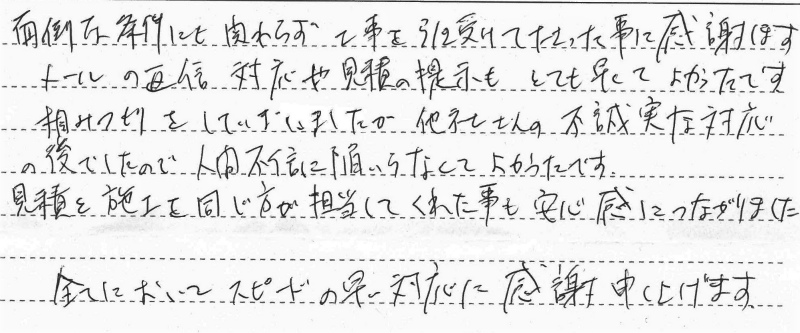 面倒な条件にも関わらず工事を引き受けてたさった事に感謝します
メールの返信 対応や見積の提示も とても早くて よかったです
相みつもりをしていましたが 他社さんの不誠実な対応
の後でしたので 人間不信に陥いらなくてよかったです。
見積と施工を同じ方が担当してくれた事も安心感につながりました
全てにおいてスピードの早い対応に感謝申し上げます